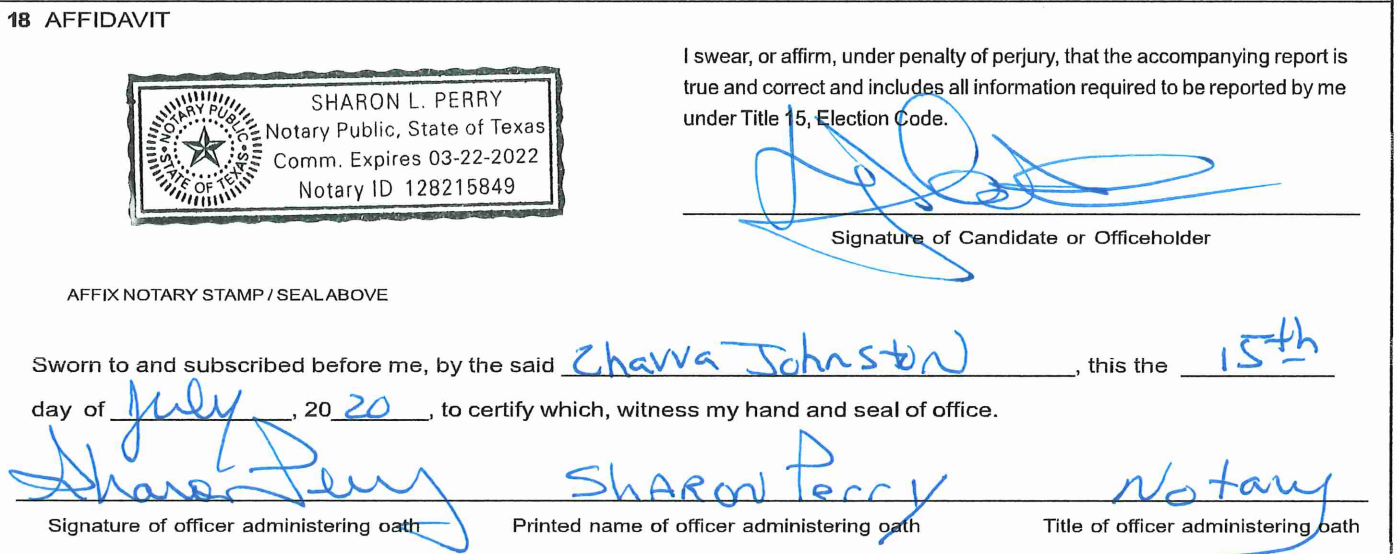 18 AFFIDAVIT
NOTARY PUBLIC
STATE OF TEXAS
SHARON L. PERRY
Notary Public, State of Texas
Comm. Expires 03-22-2022
Notary ID 128215849
I swear, or affirm, under penalty of perjury, that the accompanying report is
true and correct and includes all information required to be reported by me
under Title 15, Election Code.
Signature of Candidate or Officeholder
AFFIX NOTARY STAMP / SEAL ABOVE
Sworn to and subscribed before me, by the said Chavva Johnston, this the 15th
day of July, 20 20, to certify which, witness my hand and seal of office.
Sharon Perry SHARON Perry Notary
Signature of officer administering oath Printed name of officer administering oath Title of officer administering oath